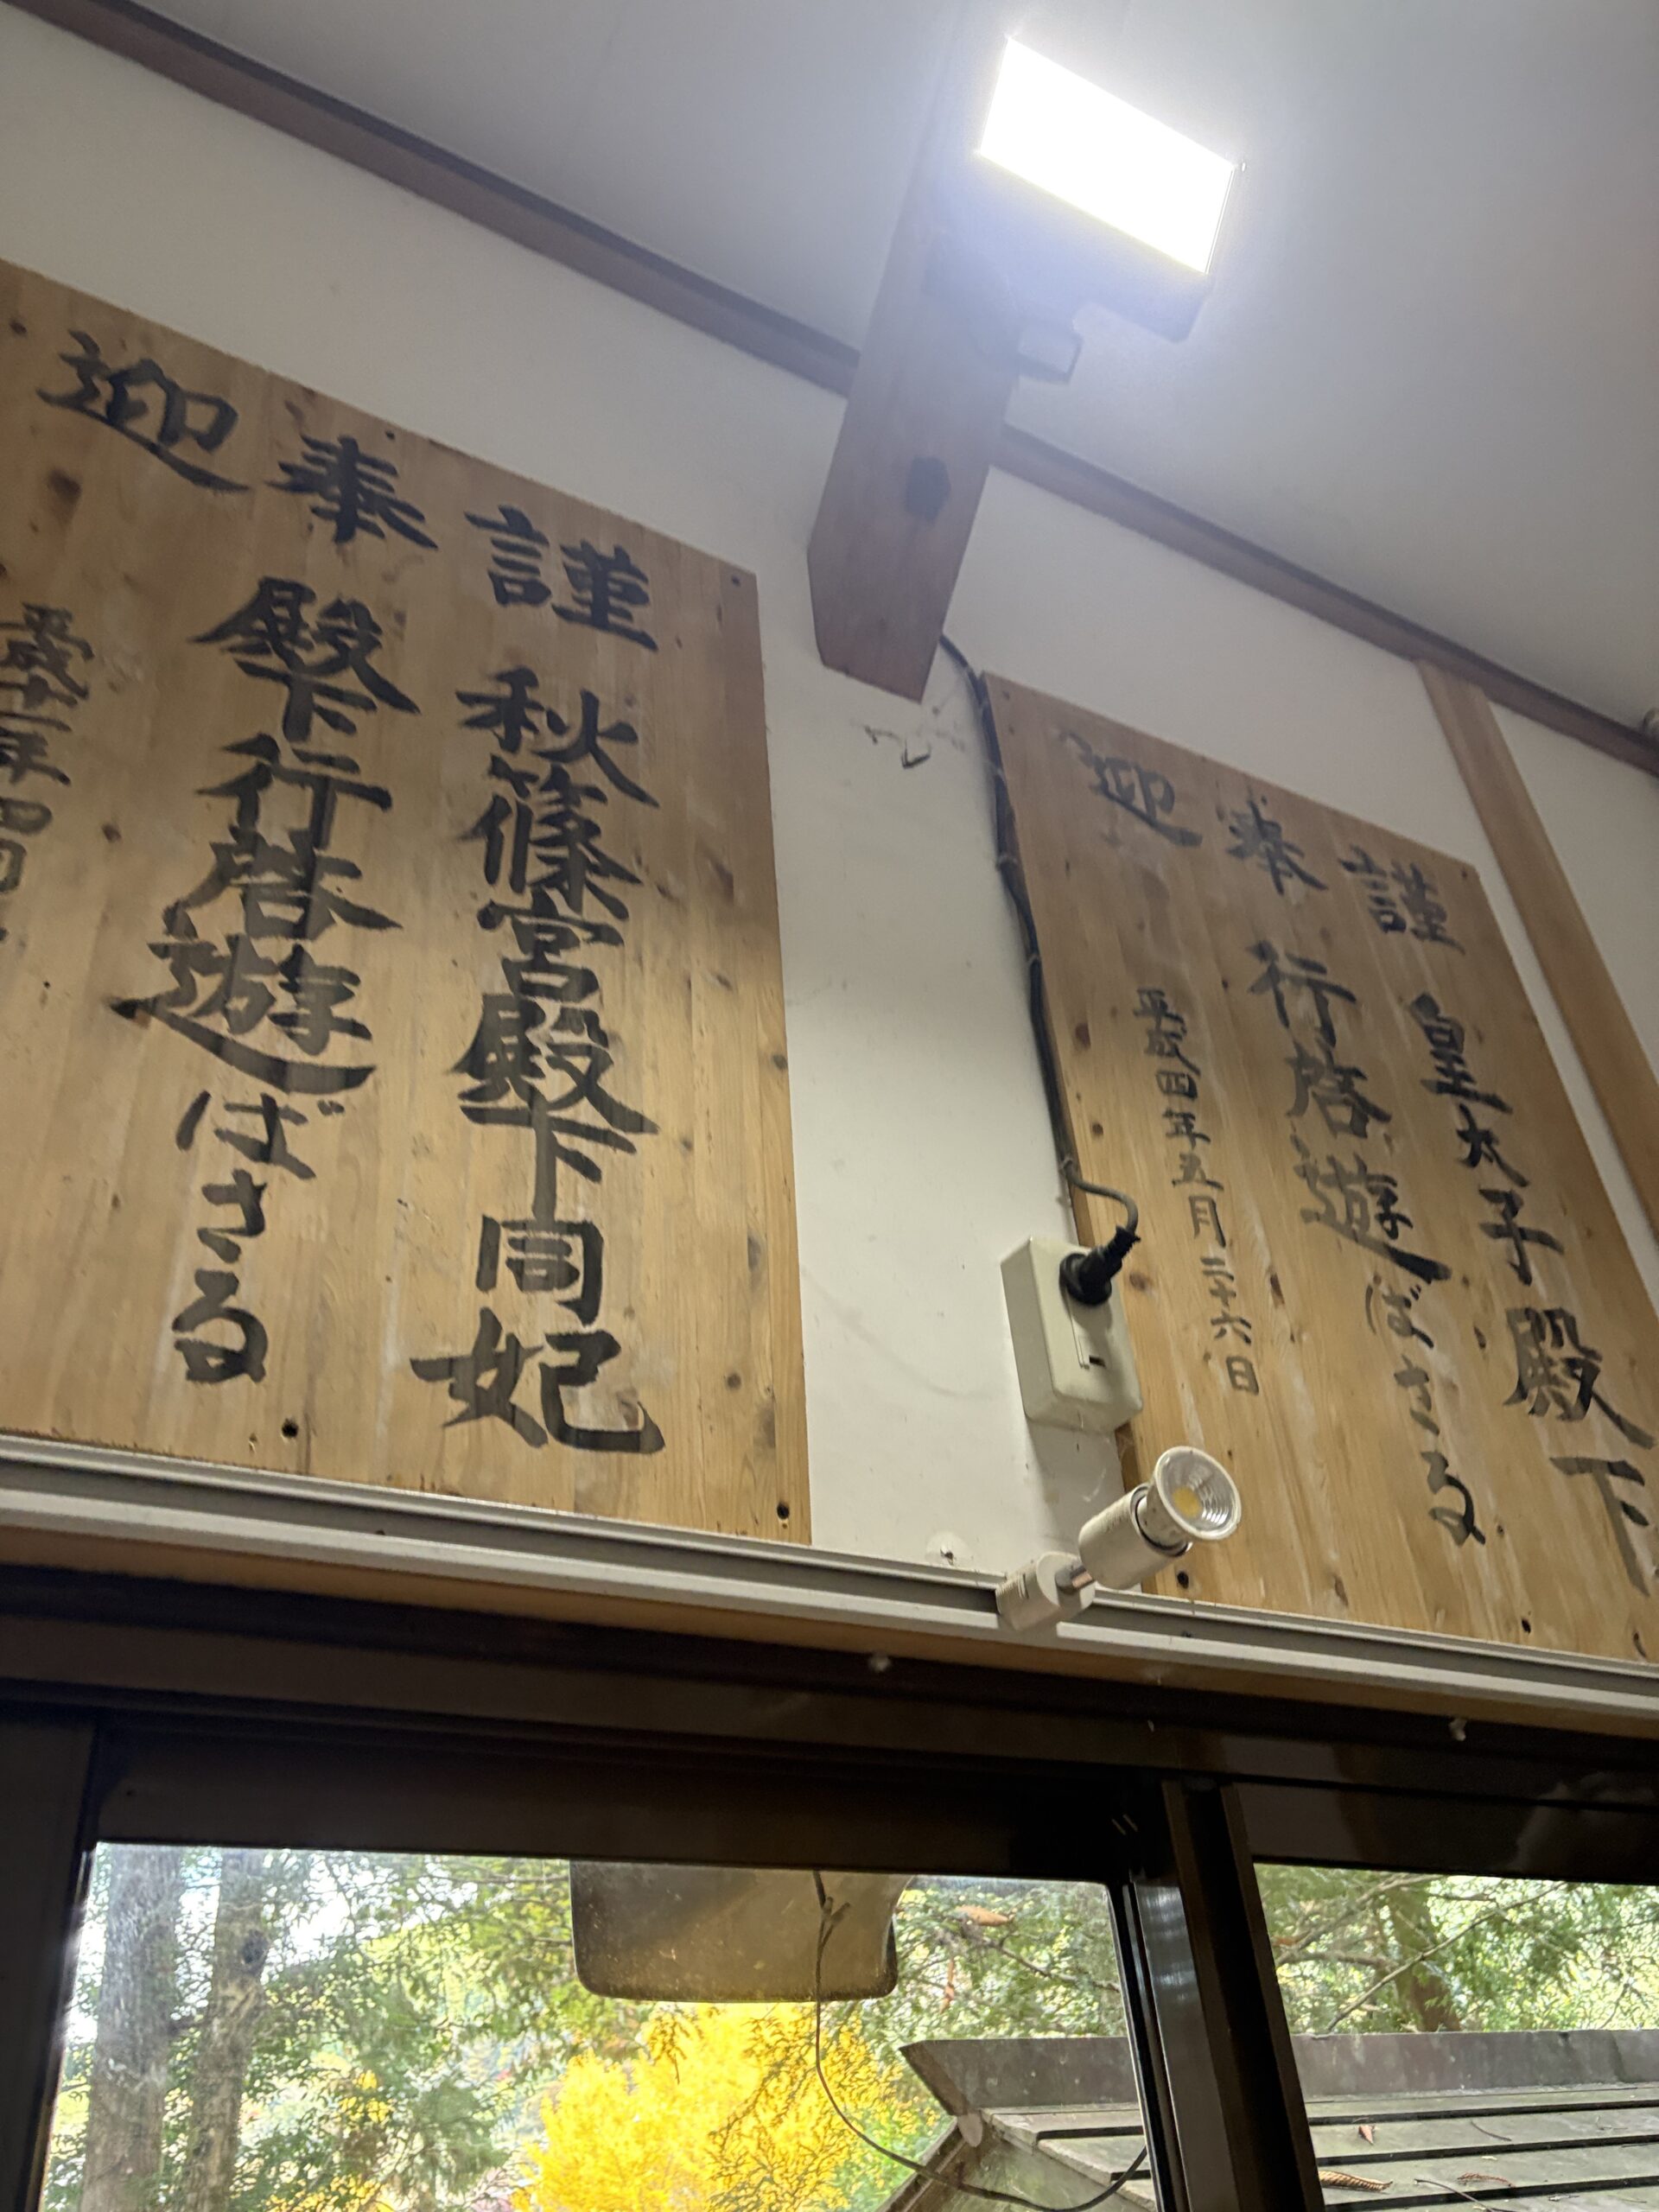 謹奉迎
皇太子殿下
行啓遊ばさる
平成四年五月二十六日
謹奉迎
秋篠宮殿下同妃
殿下行啓遊ばさる
平成十二年四月